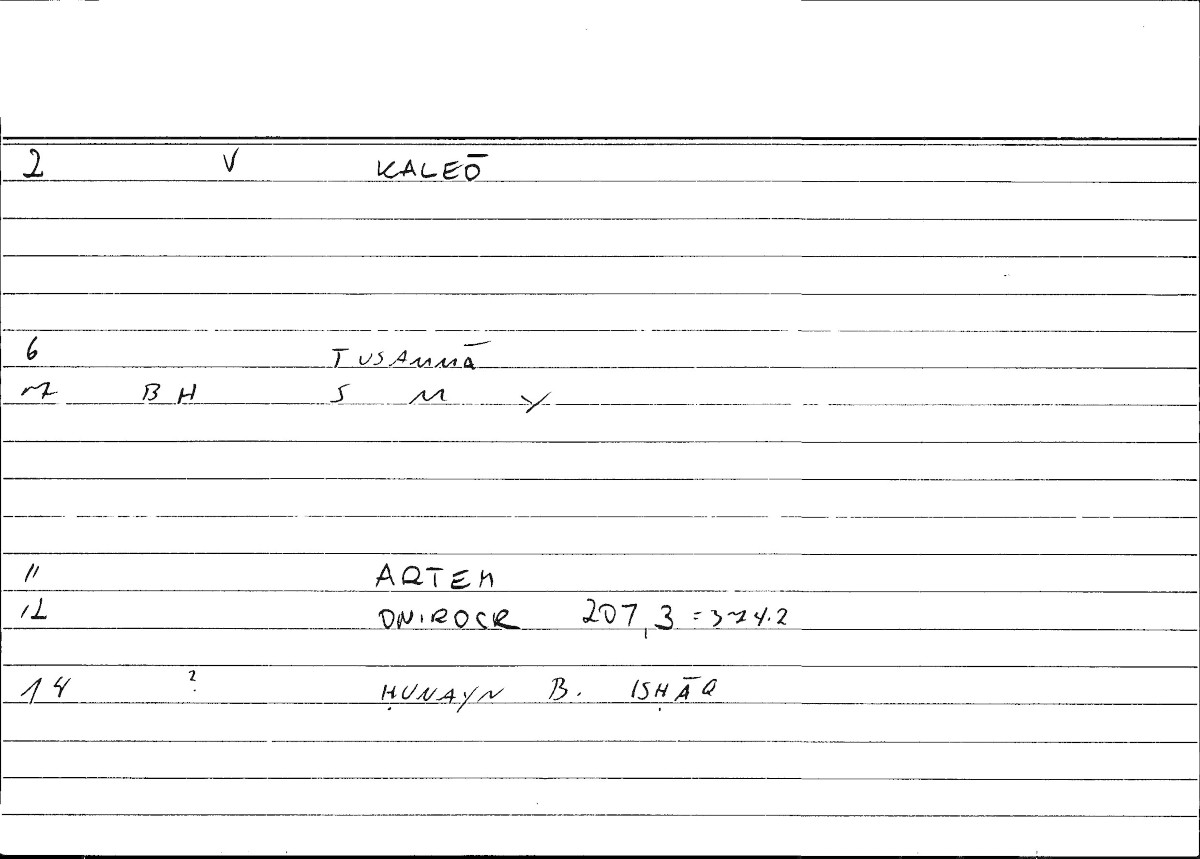 2 V KALEŌ
6 TUSAMMĀ
BH S M Y
11 ARTEM
12 ONIROCR 207,3 = 374.2
14 ? ḤUNAYN B. ISḤĀQ